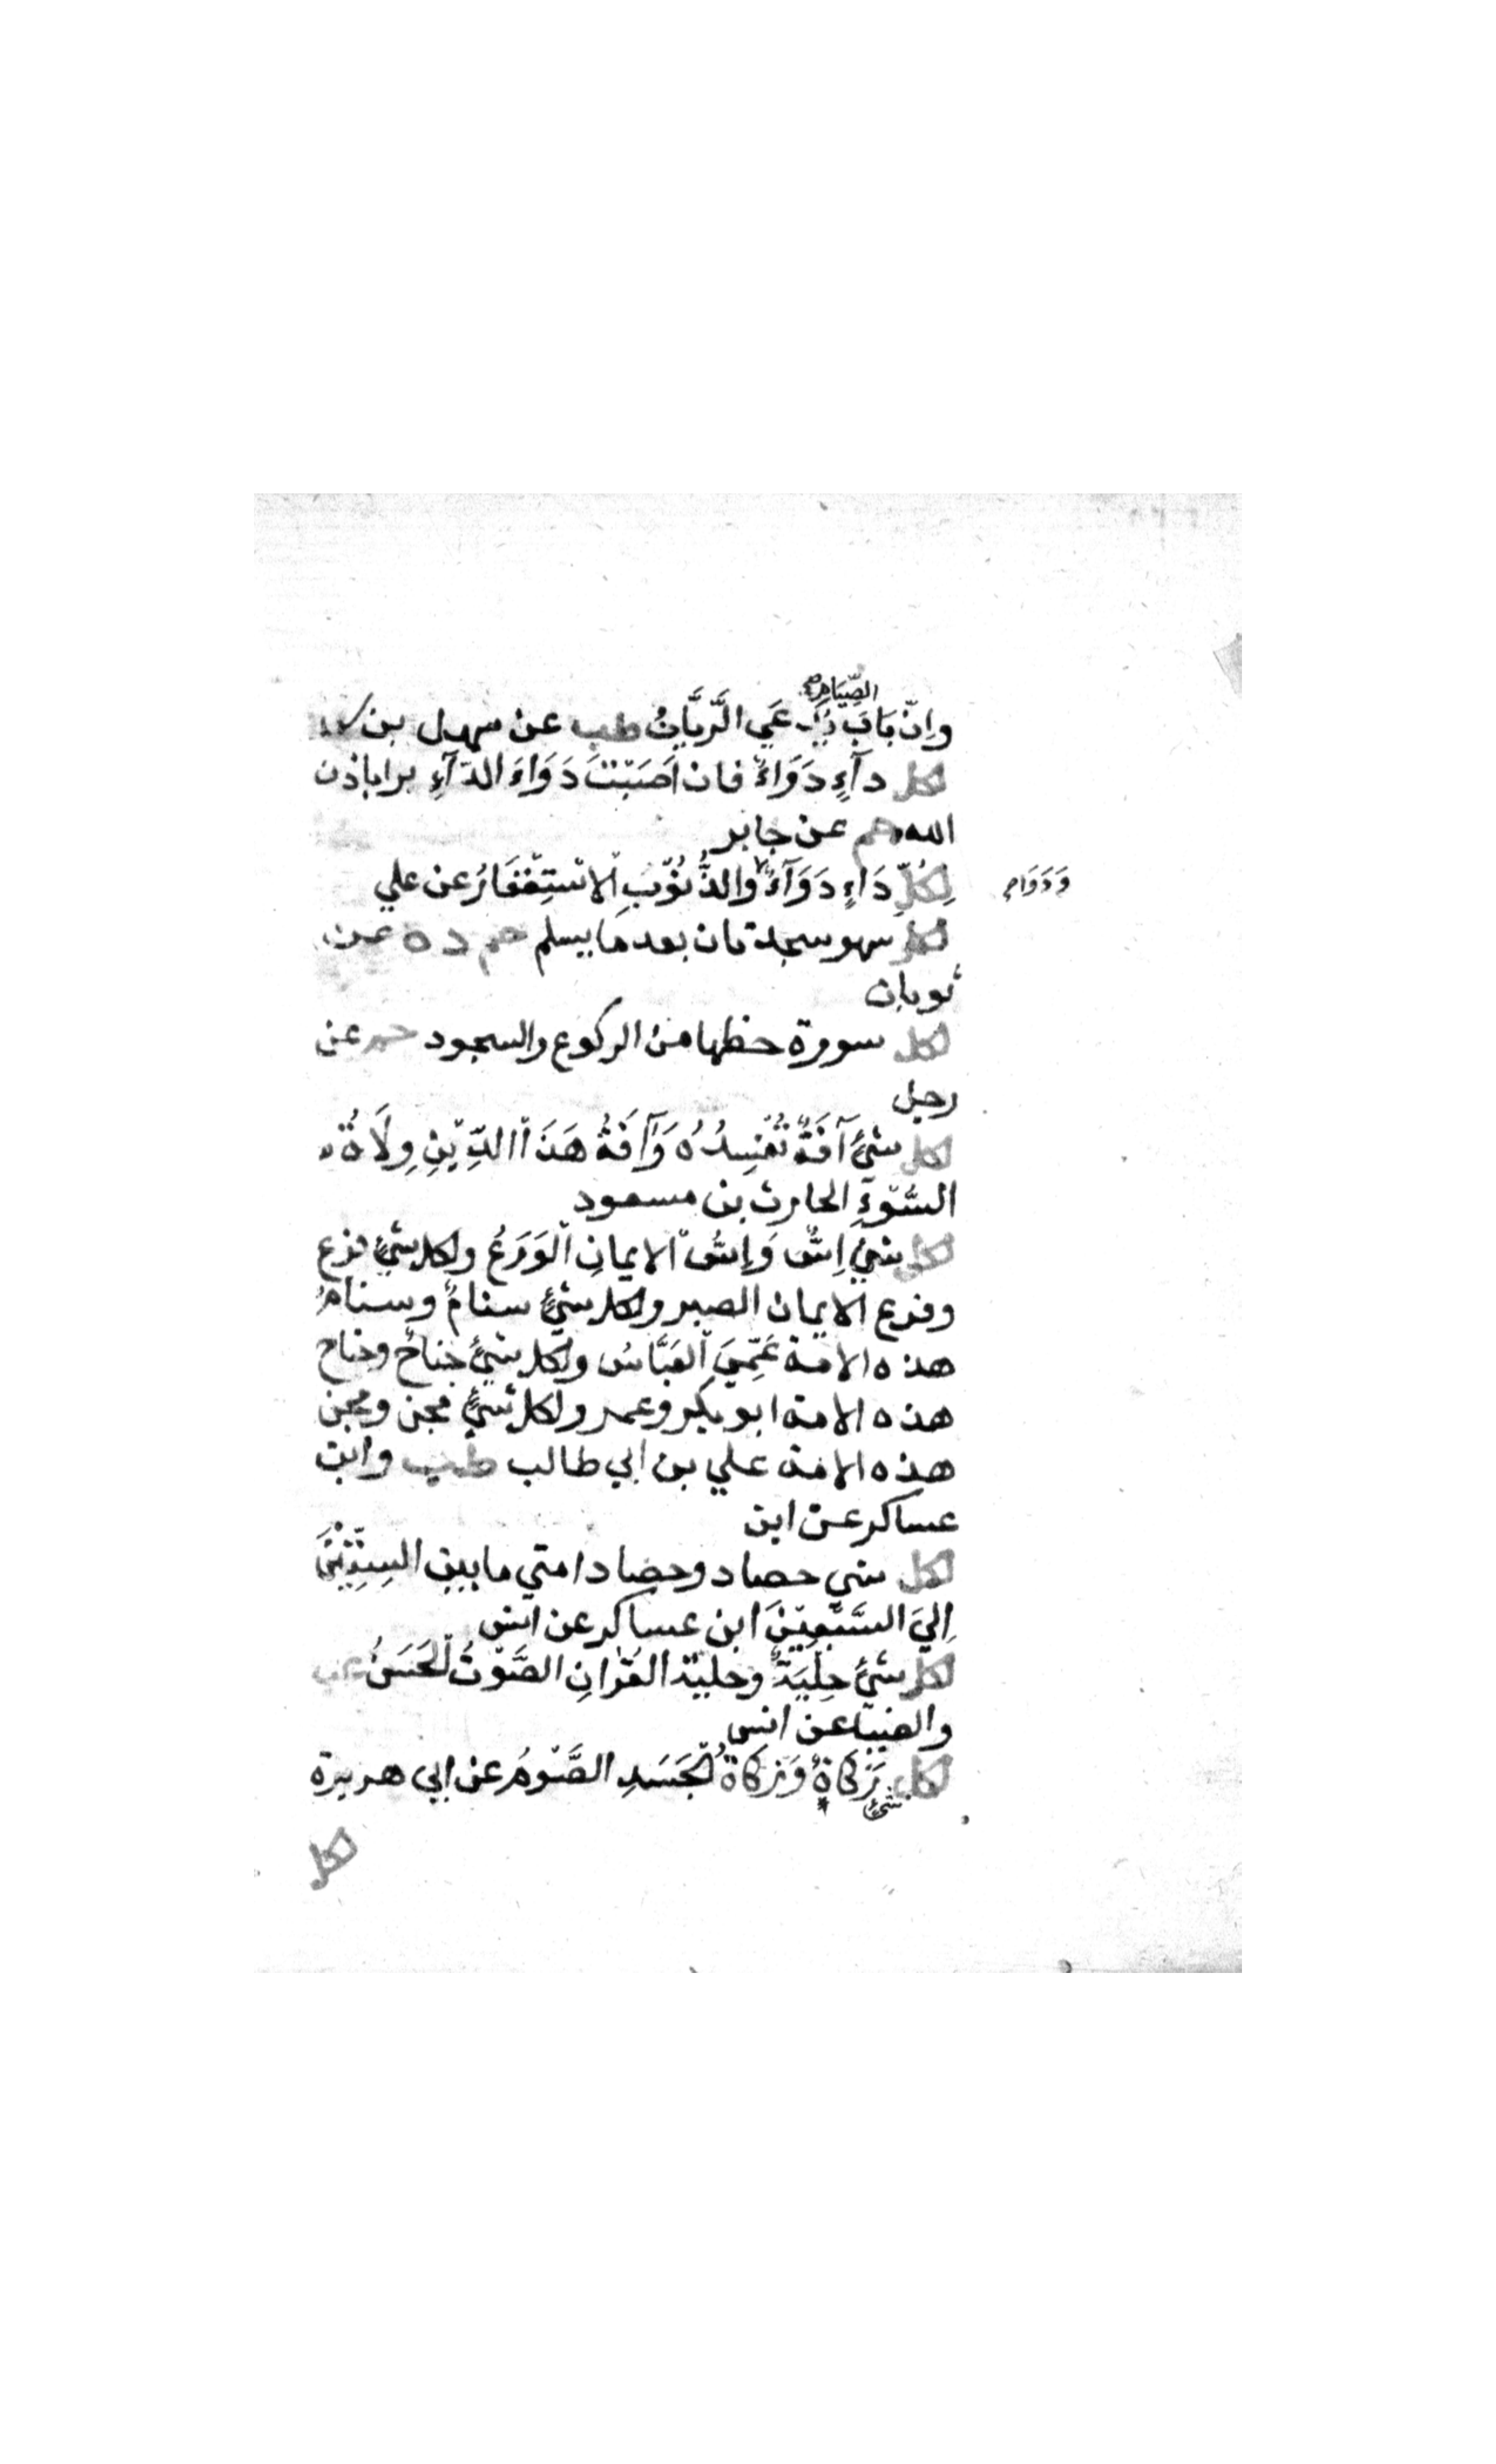 الصِّيَامِ صح
وإنّ بَابَ يُدْعَي الرَّيَّانُ طب عن سهل بن
لكل دآءٍ دَوَاءٌ فان اَصَبْتَ دَوَاءَ الدّآءِ برا باذن
الله حم عن جابر
لِكُلِّ دَاءٍ دَوَآءٌ والذُّنُوْبِ الاسْتِغْفَارُ عن علي
وَدَوَاء
لكل سهو سجدتان بعد ما يسلم حم د ه عن
ثوبان
لكل سورة حظها من الركوع والسجود حم عن
رجل
لكل شئ آفَةٌ تُفْسِدُهُ وَآفَةُ هَذَا الدِّيْنِ وِلَاةُ
السُّوْءِ الحارث بن مسعود
لكل شئ اِسٌّ وَإِسُّ الايمانِ الْوَرَعُ ولكل شئ فرع
وفرع الايمان الصبر ولكل شئ سنامٌ وسنامُ
هذه الامة عَمِّيَ الْعَبَّاسُ ولكل شئ جناحٌ وجناح
هذه الامة ابو بكر وعمر ولكل شئ مجن ومجن
هذه الامة علي بن ابي طالب طب وابن
عساكر عن ابن
لكل شي حصاد وحصاد امتي ما بين السِتِّيْنَ
اِليَ السَّبْعِيْنَ ابن عساكر عن انس
لكل شئ حِلْيَةٌ وحلية القُرْانِ الصَّوْتُ الْحَسَنُ عب
والضيا عن انس
لكل شئ زَكَاةٌ وَزَكَاةُ الْجَسَدِ الصَّوْمُ عن ابي هريرة
لكل